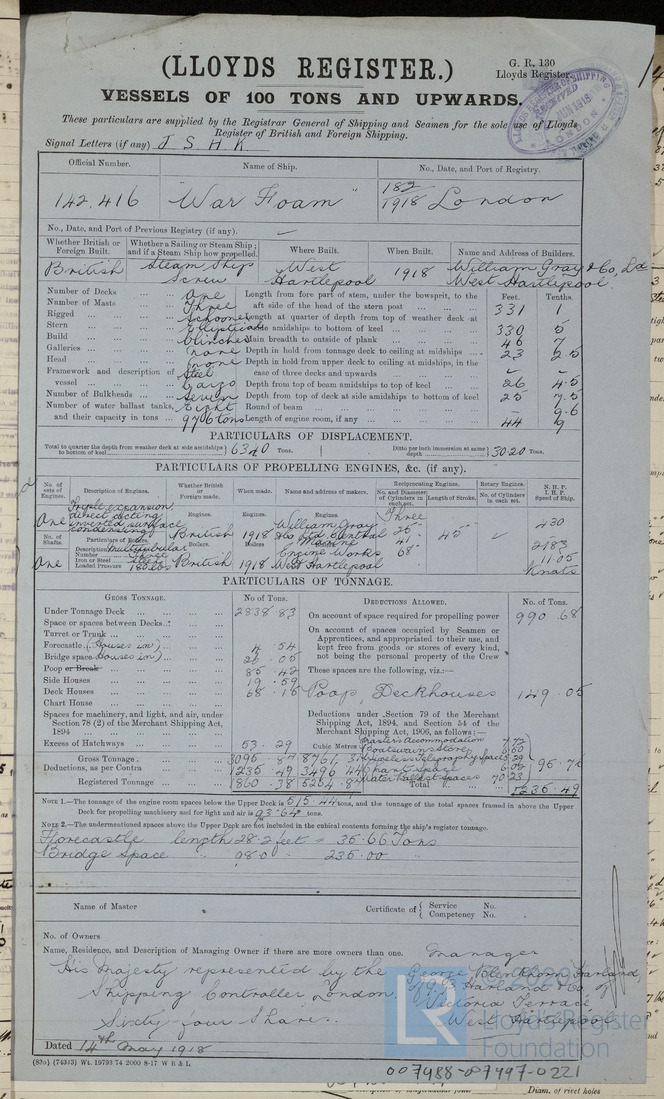 (LLOYDS REGISTER.)
G. R. 130
Lloyds Register.
VESSELS OF 100 TONS AND UPWARDS.
These particulars are supplied by the Registrar General of Shipping and Seamen for the sole use of Lloyds
Register of British and Foreign Shipping.
Signal Letters (if any) J S H K
Official Number. Name of Ship. No., Date, and Port of Registry.
142,416 "War Foam" 182/1918 London
No., Date, and Port of Previous Registry (if any). —
Whether British or Foreign Built. Whether a Sailing or Steam Ship; and if a Steam Ship how propelled. Where Built. When Built. Name and Address of Builders.
British Steam Ship Screw West Hartlepool 1918 William Gray & Co, Ltd West Hartlepool
Number of Decks One
Number of Masts Three
Rigged Schooner
Stern Elliptical
Build Clincher
Galleries none
Head none
Framework and description of vessel Steel Cargo
Number of Bulkheads Seven
Number of water ballast tanks, and their capacity in tons Eight 976 tons
Feet. Tenths.
Length from fore part of stem, under the bowsprit, to the aft side of the head of the stern post 331 1
Length at quarter of depth from top of weather deck at side amidships to bottom of keel 330 5
Main breadth to outside of plank 46 7
Depth in hold from tonnage deck to ceiling at midships 23 2.5
Depth in hold from upper deck to ceiling at midships, in the case of three decks and upwards – –
Depth from top of beam amidships to top of keel 26 4.5
Depth from top of deck at side amidships to bottom of keel 25 7.5
Round of beam – 9.6
Length of engine room, if any 44 9
PARTICULARS OF DISPLACEMENT.
Total to quarter the depth from weather deck at side amidships to bottom of keel 6340 Tons. Ditto per inch immersion at same depth 30.20 Tons.
PARTICULARS OF PROPELLING ENGINES, &c. (if any).
No. of sets of Engines. Description of Engines. Whether British or Foreign made. When made. Name and address of makers. Reciprocating Engines. Rotary Engines. N. H. P. I. H. P. Speed of Ship.
No. and Diameter of Cylinders in each set. Length of Stroke. No. of Cylinders in each set.
One Triple expansion, direct acting inverted surface condensing
Engines. British 1918 William Gray & Co Ltd Central Marine Engine Works West Hartlepool
Three 25" 41" 68" 45" 430 2183 11.05 Knots
No. of Shafts. One
Particulars of Boilers. Description Multitubular
Number
Iron or Steel
Loaded Pressure 180 lbs
Boilers. British 1918
PARTICULARS OF TONNAGE.
GROSS TONNAGE. No. of Tons.
Under Tonnage Deck 2838.83
Space or spaces between Decks
Turret or Trunk
Forecastle (Houses in) 4 54
Bridge space (Houses in) 26 05
Poop or Break 85 42
Side Houses 19 59
Deck Houses 68 15
Chart House
Spaces for machinery, and light, and air, under Section 78 (2) of the Merchant Shipping Act, 1894
Excess of Hatchways 53.29
Cubic Metres
Gross Tonnage 3095.87 8761.31
Deductions, as per Contra 1235 49 3496 44
Registered Tonnage 1860.38 5264.87
DEDUCTIONS ALLOWED. No. of Tons.
On account of space required for propelling power 990.68
On account of spaces occupied by Seamen or Apprentices, and appropriated to their use, and kept free from goods or stores of every kind, not being the personal property of the Crew
These spaces are the following, viz.:—
Poop, Deckhouses 149.05
Deductions under Section 79 of the Merchant Shipping Act, 1894, and Section 54 of the Merchant Shipping Act, 1906, as follows:—
Master's Accommodation
Boatswain's Store
Wireless Telegraphy Space
Chart Space
Water Ballast Spaces 70 23
95.76
Total 1235.49
NOTE 1.—The tonnage of the engine room spaces below the Upper Deck is 515.44 tons, and the tonnage of the total spaces framed in above the Upper
Deck for propelling machinery and for light and air is 93.64 tons.
NOTE 2.—The undermentioned spaces above the Upper Deck are not included in the cubical contents forming the ship's register tonnage.
Forecastle length 28.2 feet = 36.66 Tons
Bridge Space " 98.0 " 235.00 "
Name of Master
Certificate of { Service No. Competency No.
No. of Owners
Name, Residence, and Description of Managing Owner if there are more owners than one.
His Majesty represented by the
Shipping Controller, London.
Sixty four Shares.
Manager
George Harland,
Harland & Co. of
Victoria Terrace
West Hartlepool
Dated 14th May 1918
(83o) (74313) Wt. 19793/74 2000 8-17 W B & L
LR
Lloyd's Register
Foundation
007988-07997-0221
Diam. of rivet holes